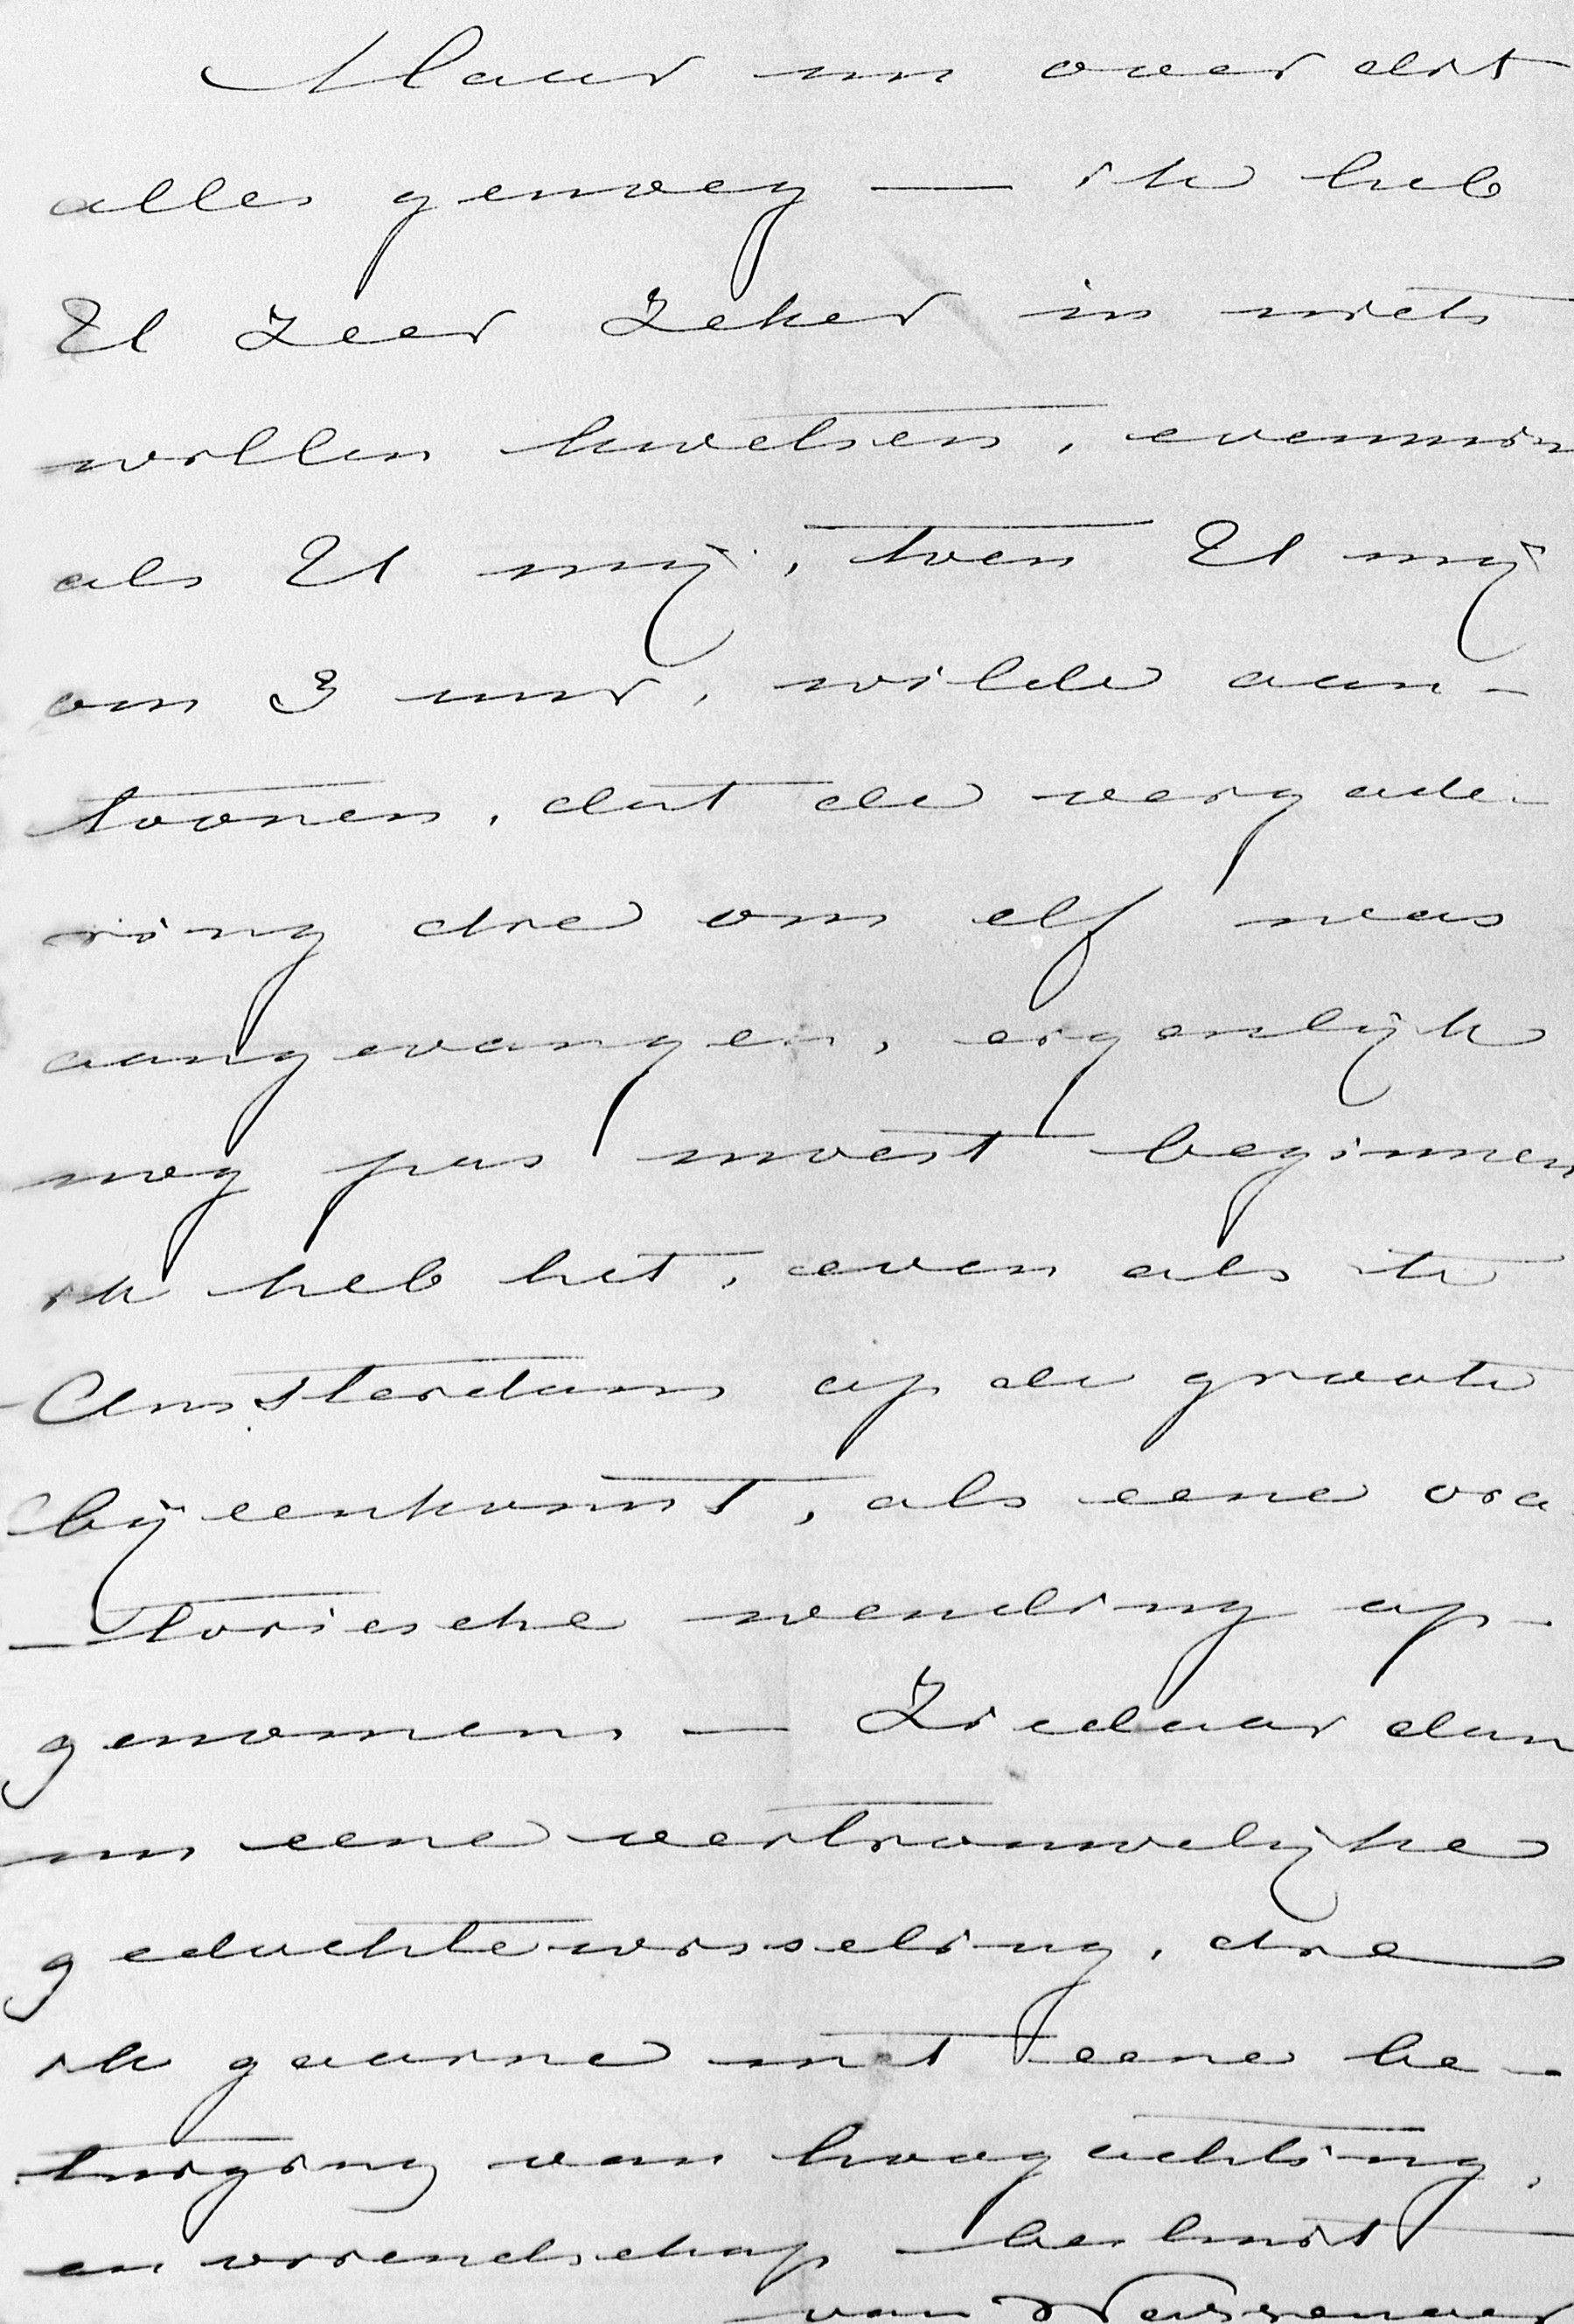 Maar nu over dit
alles genoeg — ik heb
U zeer zeker in niets
willen kwetsen, evenmin
als U mij, toen U mij
om 3 uur, wilde aan-
toonen, dat de vergade-
ring die om elf was
aangevangen, eigenlijk
nog pas moest beginnen
ik heb het, even als te
Amsterdam op de groote
bijeenkomst, als eene ora
-toriesche wending op-
genomen — Ziedaar dan
nu eene vertrouwelijke
gedachtewisseling, die
ik gaarne met eene be-
tuiging van hoogachting,
en vriendschap besluit
van Wassenaer